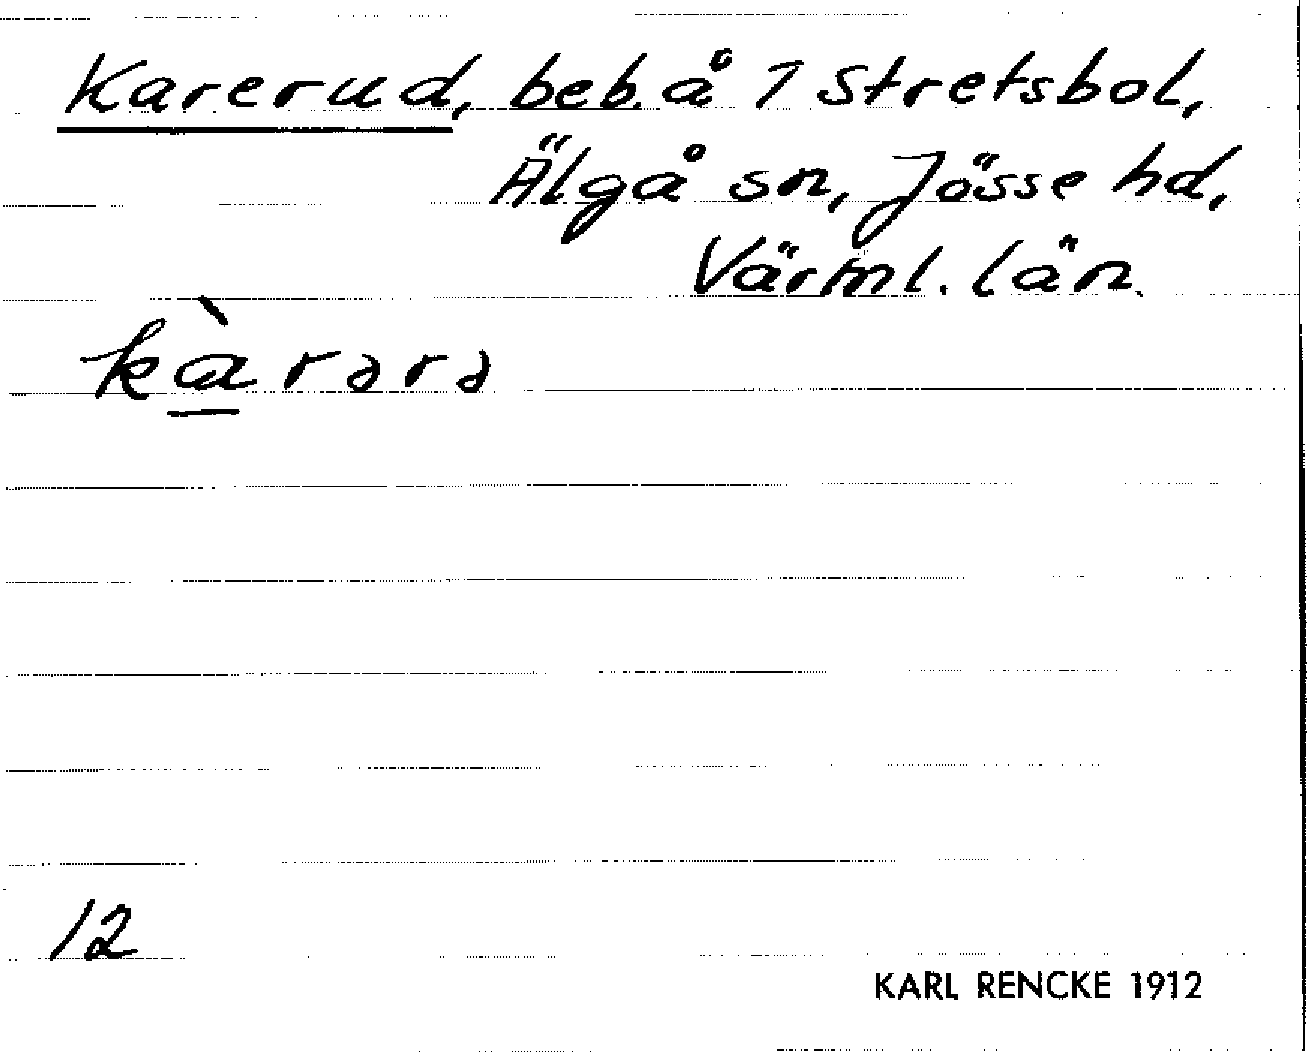 Karerud, beb. å 1 Stretsbol,
Älgå sn, Jösse hd,
Värml. län.
kàrərə
12
KARL RENCKE 1912